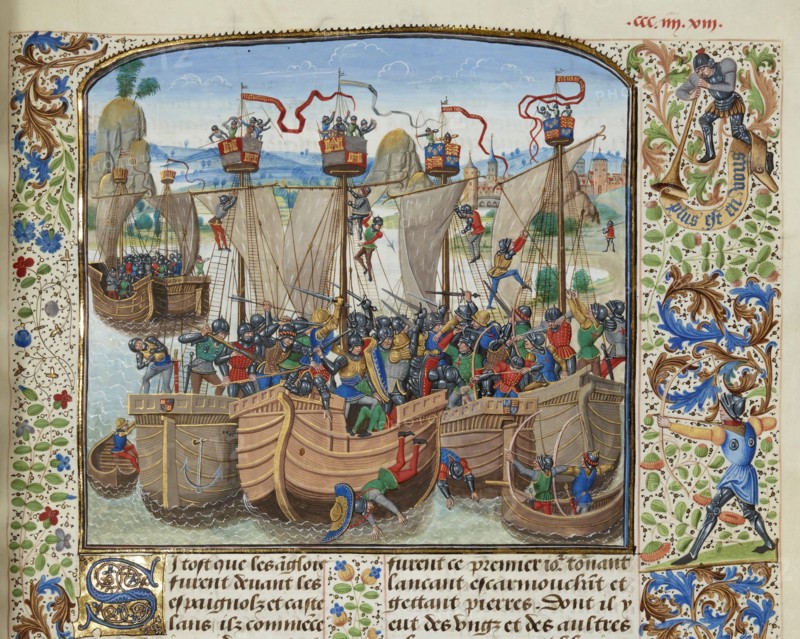 .ccc. iiij. xviij.
plus est en vous
SI tost que les āglois
furent deuant les
espaignolz et caste
lans ilz commēce
furent ce premier io.r tonnant
lancant escarmouchāt et
gettant pierres. Dont il y
eut des vngz et des aultres